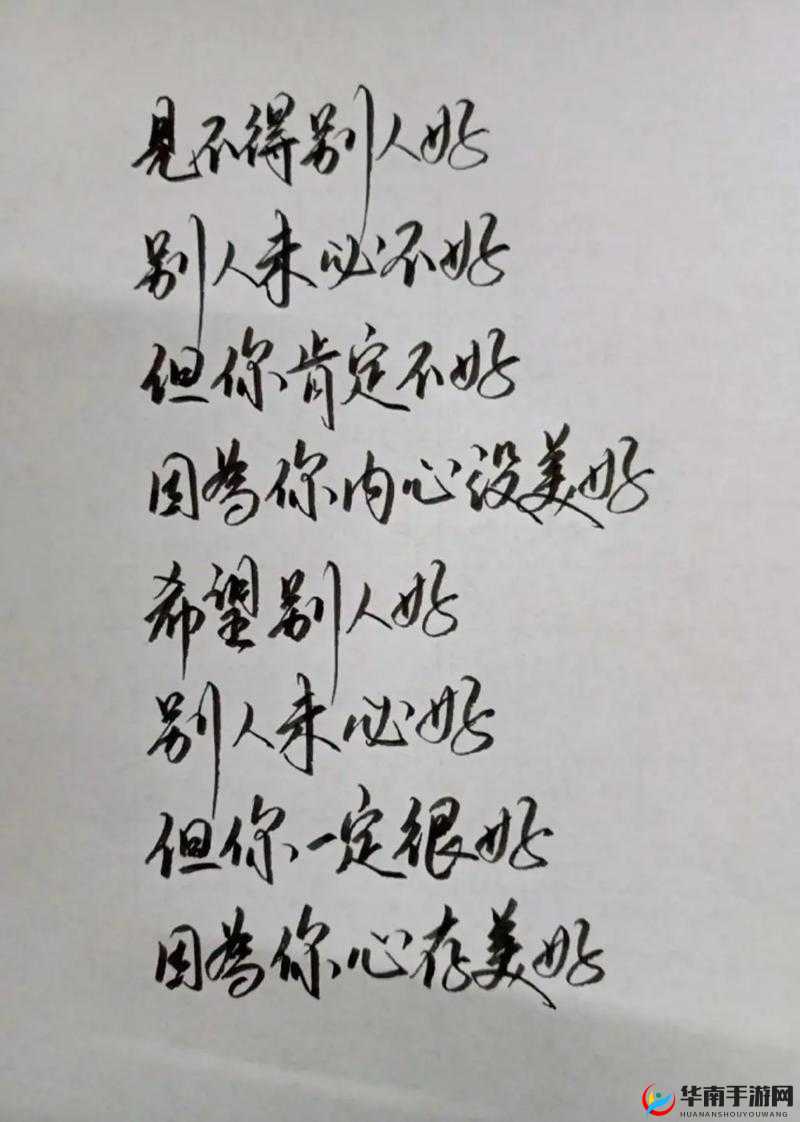 見不得别人好
别人未必不好
但你肯定不好
因為你内心没美好
希望别人好
别人未必好
但你一定很好
因為你心存美好
华南手游网
HUANANSHOUYOUWANG